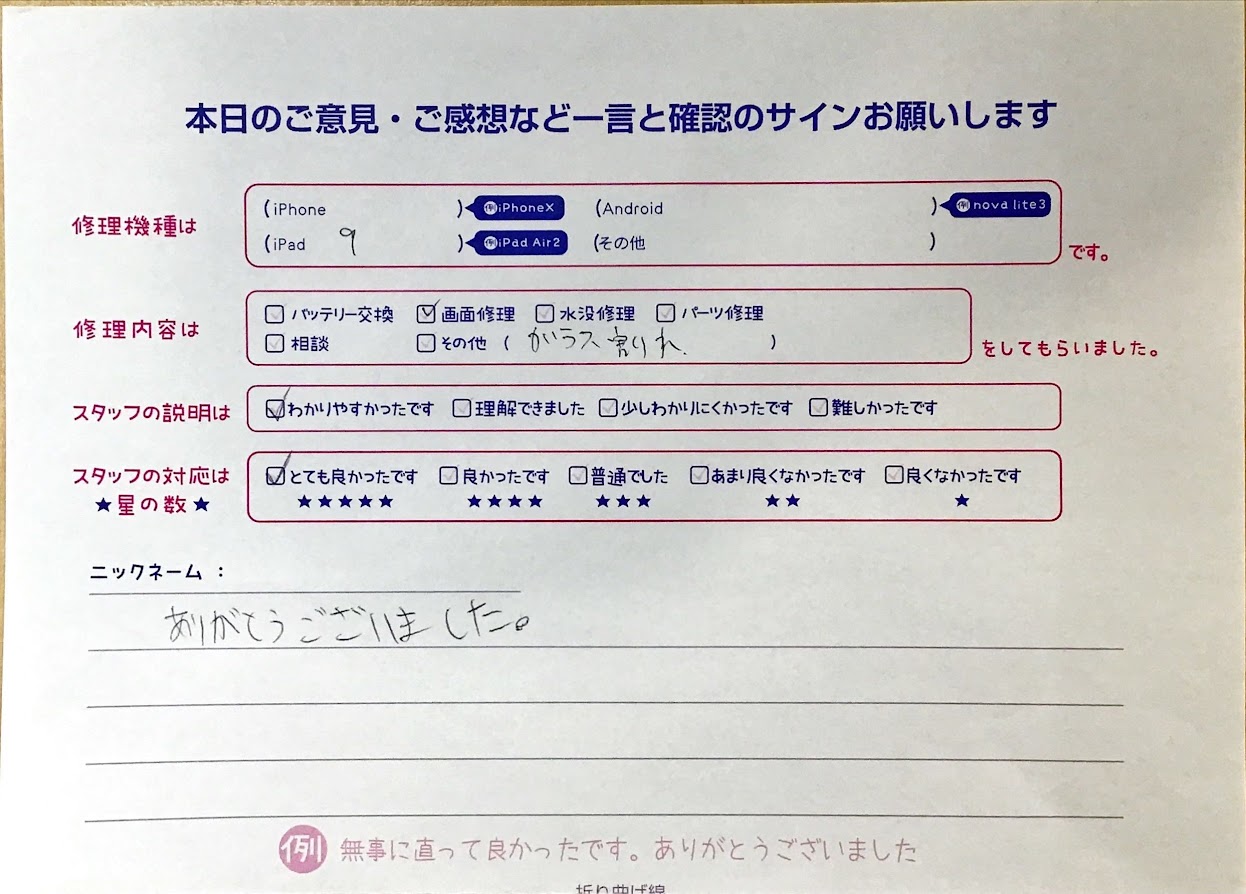 本日のご意見・ご感想など一言と確認のサインお願いします
修理機種は
(iPhone ) 例iPhoneX (Android ) 例nova lite3
(iPad 9 ) 例iPad Air2 (その他 )
です。
修理内容は
バッテリー交換 画面修理 水没修理 パーツ修理
相談 その他 ( ガラス割りれ. )
をしてもらいました。
スタッフの説明は
わかりやすかったです 理解できました 少しわかりにくかったです 難しかったです
スタッフの対応は
★星の数★
とても良かったです 良かったです 普通でした あまり良くなかったです 良くなかったです
★★★★★ ★★★★ ★★★ ★★ ★
ニックネーム :
ありがとうございました。
例 無事に直って良かったです。ありがとうございました
折り曲げ線